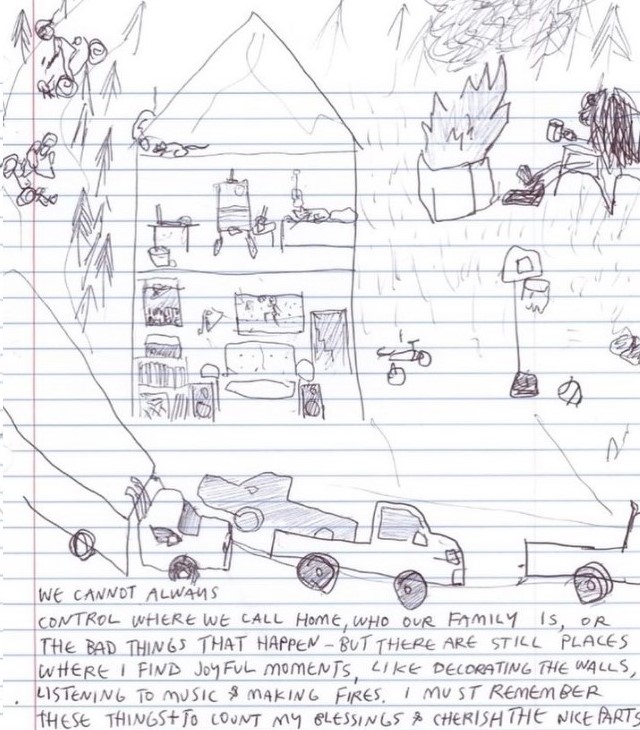 WE CANNOT ALWAYS
CONTROL WHERE WE CALL HOME, WHO OUR FAMILY IS, OR
THE BAD THINGS THAT HAPPEN - BUT THERE ARE STILL PLACES
WHERE I FIND JOYFUL MOMENTS, LIKE DECORATING THE WALLS,
LISTENING TO MUSIC & MAKING FIRES. I MUST REMEMBER
THESE THINGS + TO COUNT MY BLESSINGS & CHERISH THE NICE PARTS